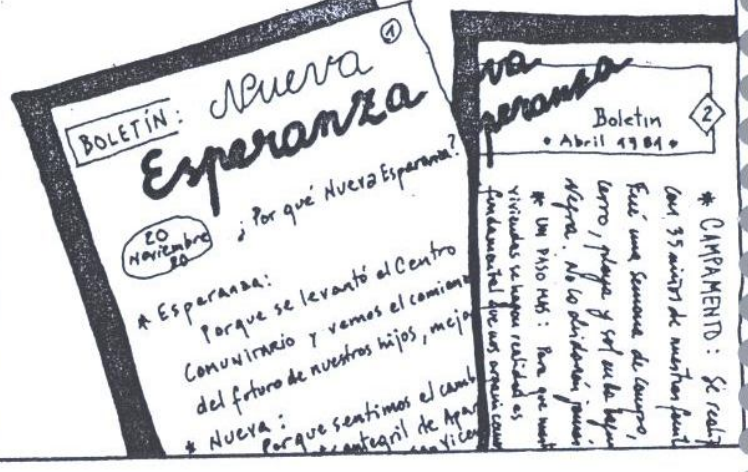 BOLETÍN: Nueva
1
Esperanza
20
Noviembre
80
¿Por qué Nueva Esperanza?
* Esperanza:
Porque se levantó el Centro
Comunitario y vemos el comienz
del futuro de nuestros hijos, mejo
* Nueva:
Porque sentimos el camb
cantegril de Apar
San Vicen
va
peranza
Boletín
2
• Abril 1981 •
* CAMPAMENTO: Se realiz
con 35 niños de nuestras famil
Fué una semana de campo,
cerro, playa y sol en la
Negra. No lo olvidarán jamás
* UN PASO MAS: Para que nuest
viviendas se hagan realidad es
fundamental que nos organicemos